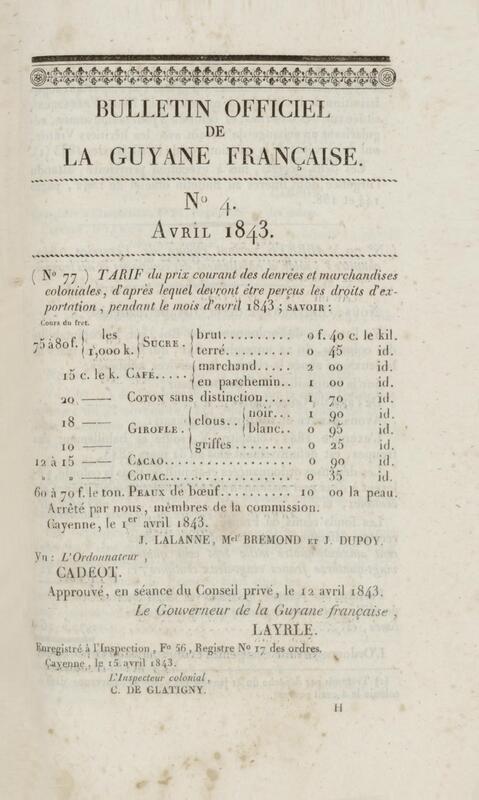 BULLETIN OFFICIEL
DE
LA GUYANE FRANÇAISE.
Nº 4.
AVRIL 1843.
( Nº 77 ) TARIF du prix courant des denrées et marchandises
coloniales, d'après lequel devront être perçus les droits d'ex-
portation, pendant le mois d'avril 1843 ; SAVOIR :
Cours du fret.
75 à 80 f. { les 1,000 k. } SUCRE. { brut.......... 0 f. 40 c. le kil.
{ terré......... 0 45 id.
15 c. le k. CAFÉ..... { marchand..... 2 00 id.
{ en parchemin.. 1 00 id.
20 —— COTON sans distinction.... 1 70 id.
18 —— GIROFLE. { clous.. { noir... 1 90 id.
{ blanc.. 0 95 id.
10 —— { griffes........ 0 25 id.
12 à 15 —— CACAO.................. 0 90 id.
» » —— COUAC.................. 0 35 id.
60 à 70 f. le ton. PEAUX de bœuf.......... 10 00 la peau.
Arrêté par nous, membres de la commission.
Cayenne, le 1er avril 1843.
J. LALANNE, Mel BREMOND ET J. DUPOY.
Vu : L'Ordonnateur,
CADEOT.
Approuvé, en séance du Conseil privé, le 12 avril 1843.
Le Gouverneur de la Guyane française,
LAYRLE.
Enregistré à l'Inspection, Fº 56, Registre Nº 17 des ordres.
Cayenne, le 15 avril 1843.
L'Inspecteur colonial,
C. DE GLATIGNY.
H